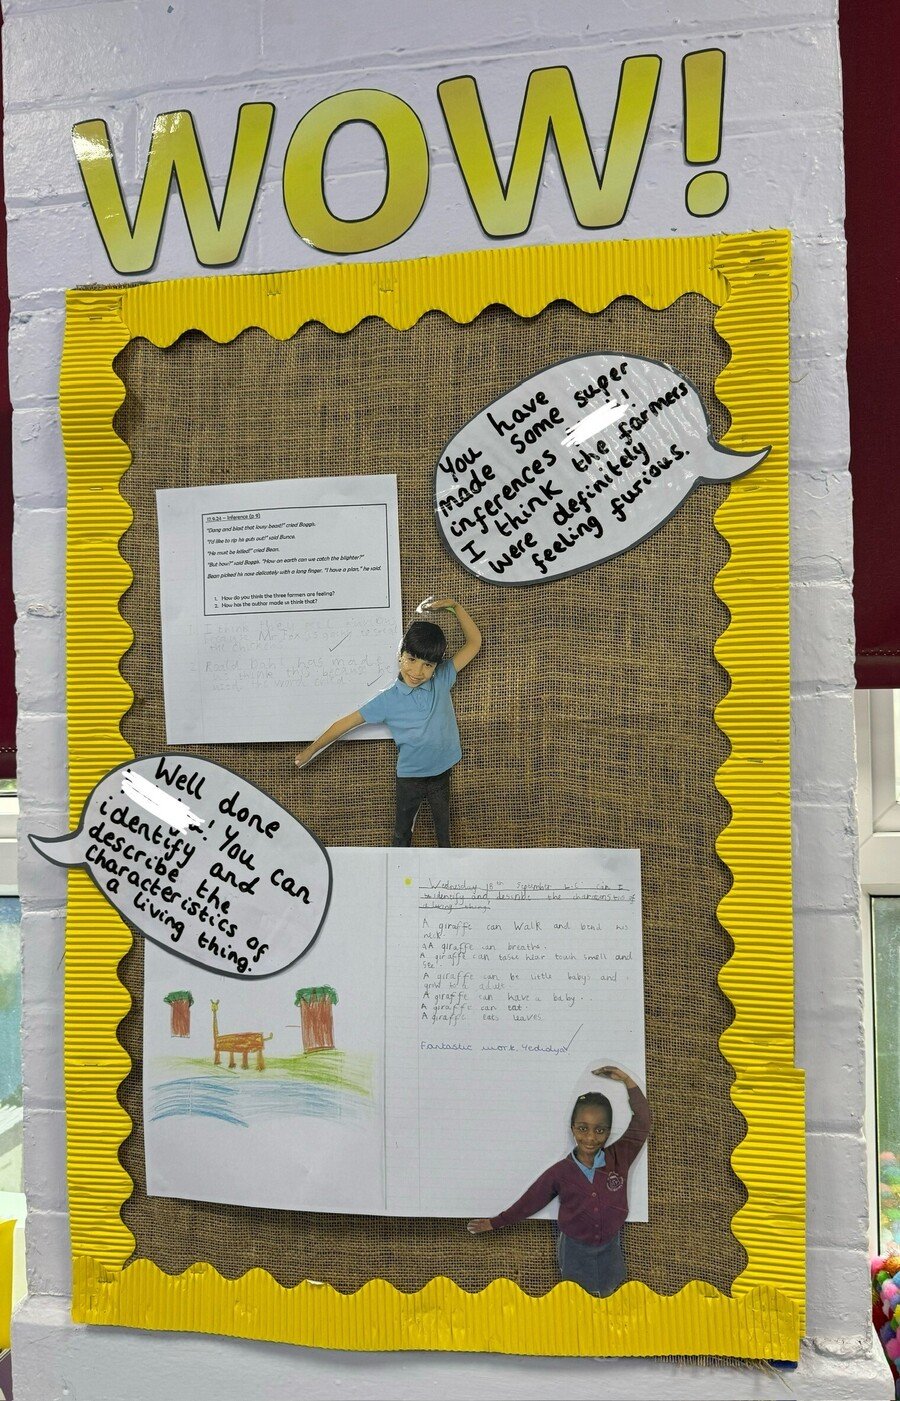 WOW!
You have
made some super
inferences
I think the farmers
were definitely
feeling furious.
17.9.24 - Inference (p 9)
"Dang and blast that lousy beast!" cried Boggis.
"I'd like to rip his guts out!" said Bunce.
"He must be killed!" cried Bean.
"But how?" said Boggis. "How on earth can we catch the blighter?"
Bean picked his nose delicately with a long finger. "I have a plan," he said.
1. How do you think the three farmers are feeling?
2. How has the author made us think that?
I think they are
because Mr Fox is
the chickens
Roald Dahl has made
us think this because he
used the word cried
Well done
, You can
identify and
describe the
characteristics of
a living thing.
Wednesday 18th September L.O Can I
identify and describe the characteristics of
a living thing
A giraffe can walk and bend his
neck.
A giraffe can breathe.
A giraffe can taste hear touch smell and
see.
A giraffe can be little babys and
grow to a adult.
A giraffe can have a baby.
A giraffe can eat.
A giraffe eats leaves
Fantastic work, Yedidya